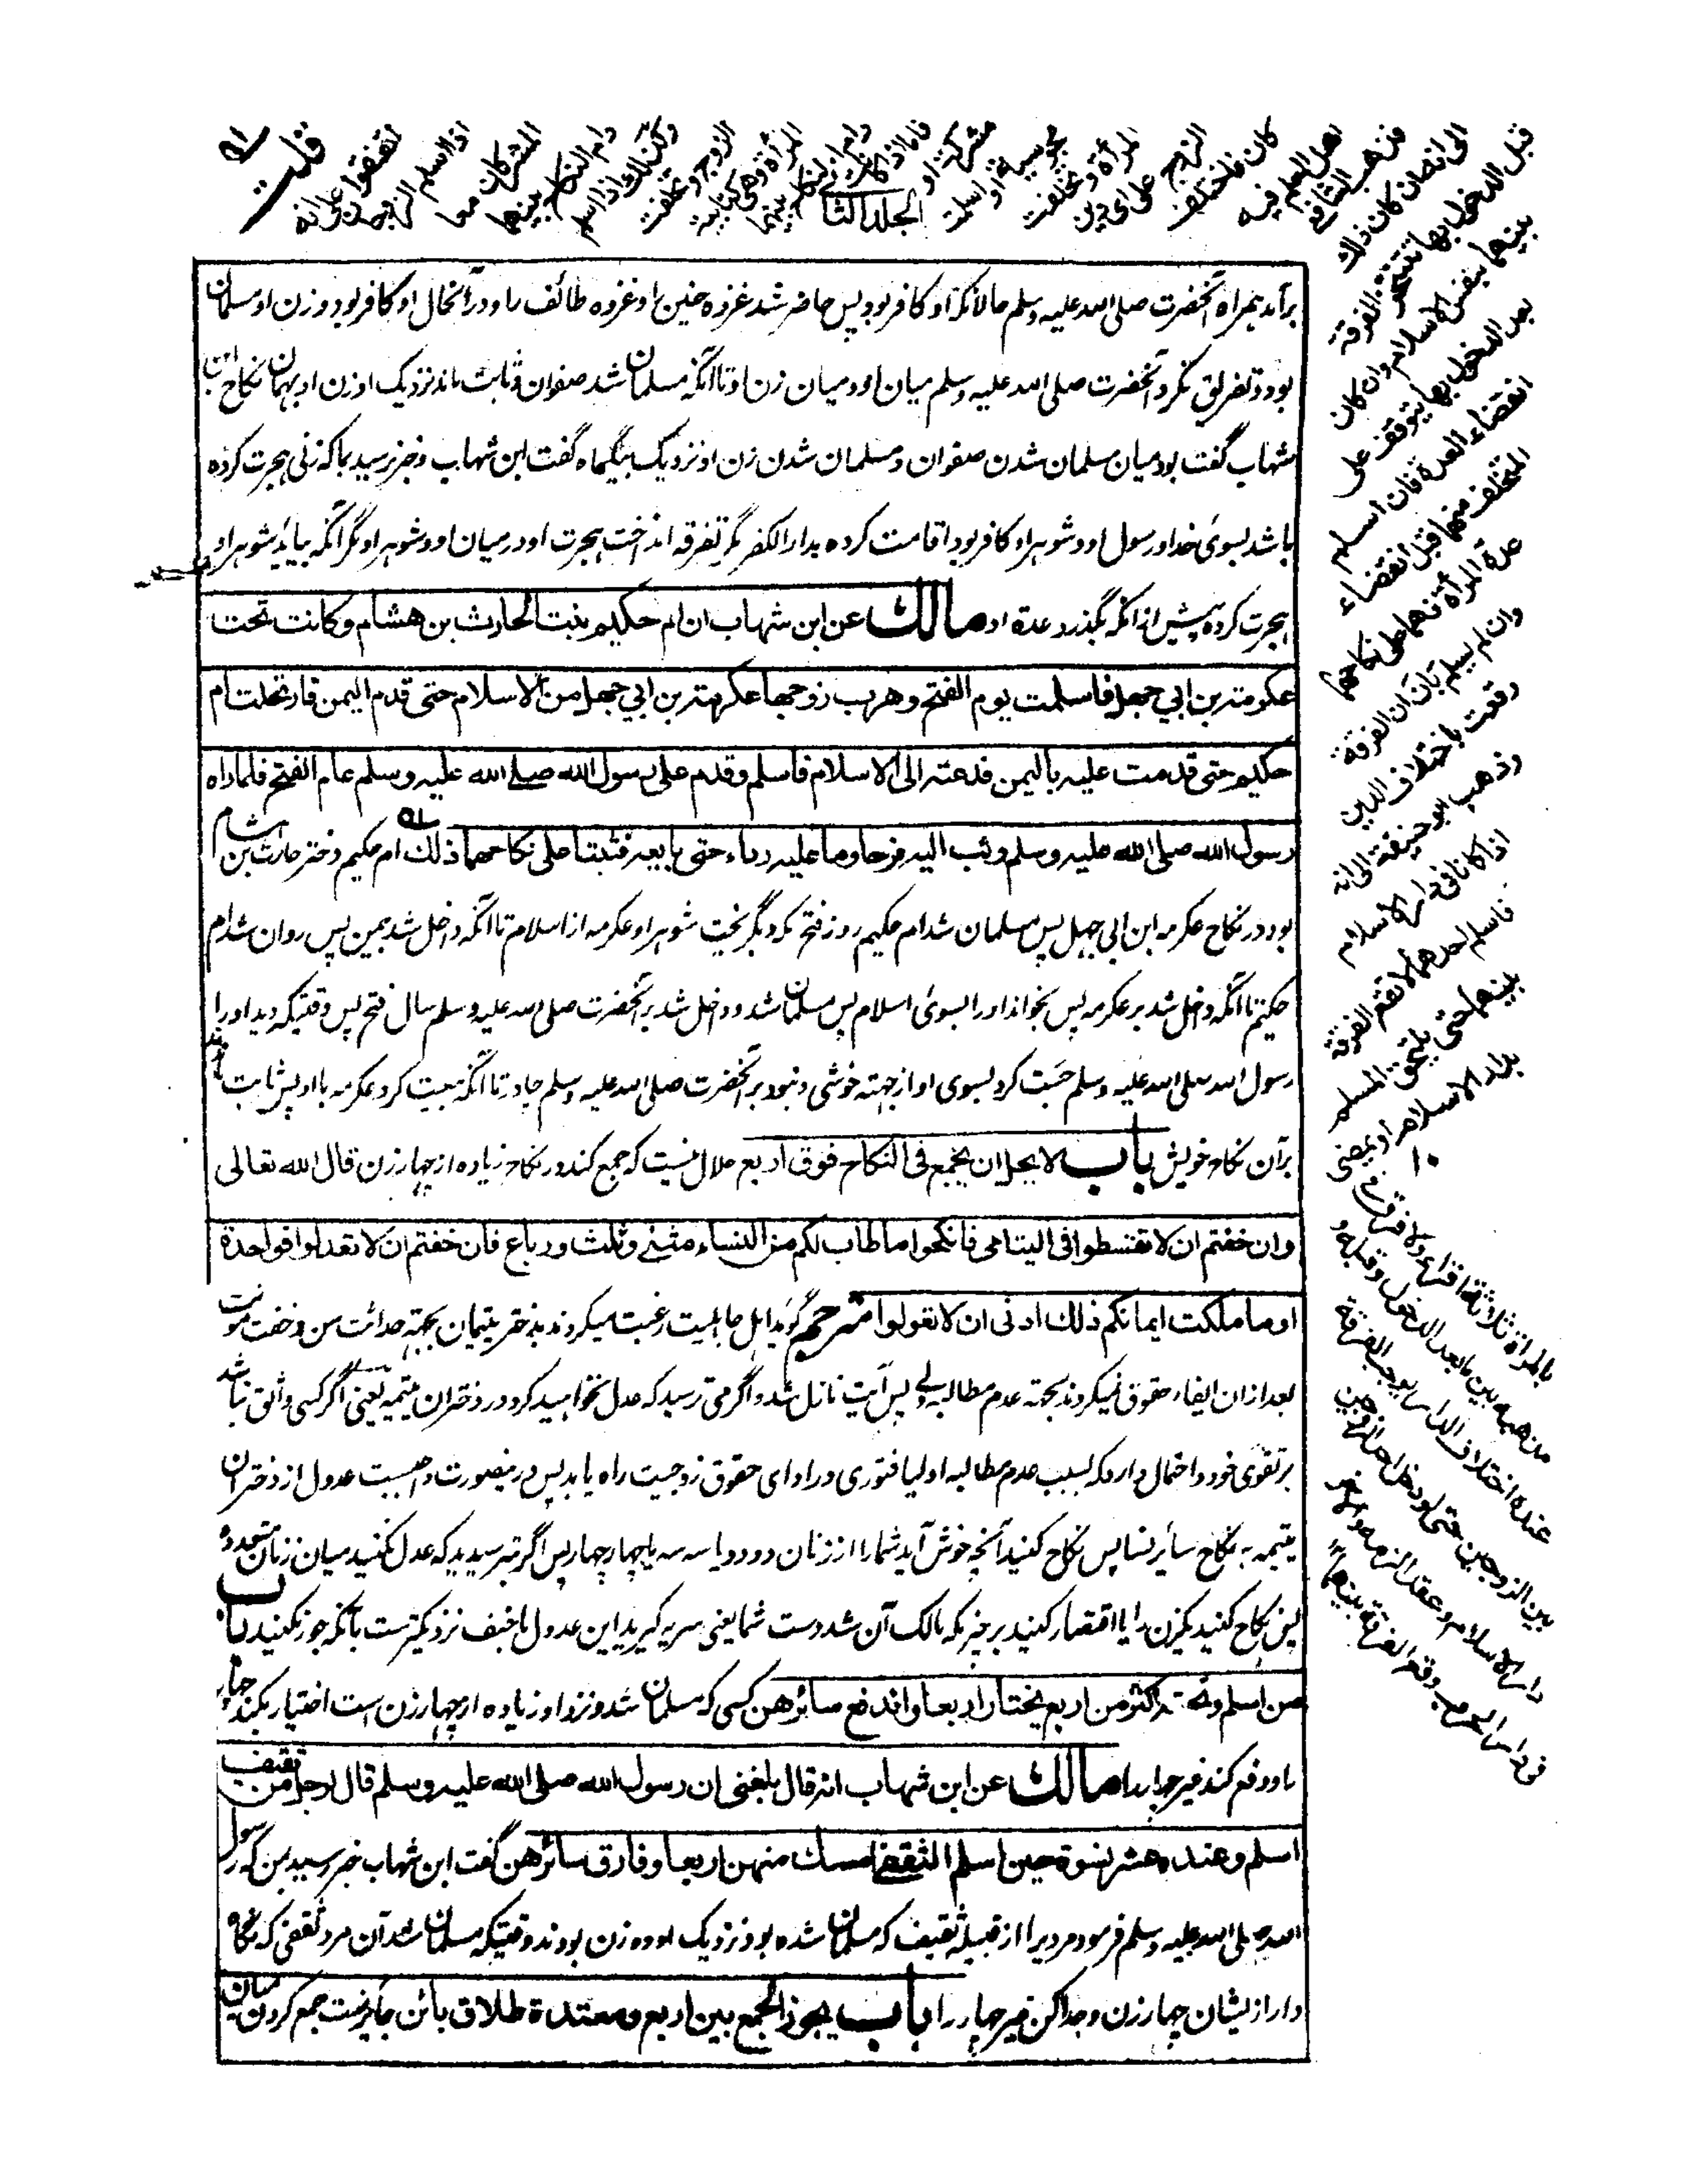 الجلد الثاني
برآمد همراه آنحضرت صلی الله علیه وسلم حالانکه او کافر بود پس حاضر شد غزوه حنین را و غزوه طائف را و درآنحال او کافر بود و زن او مسلمان
بود و تفریق نکرد آنحضرت صلی الله علیه وسلم میان او و میان زن او تا آنکه مسلمان شد صفوان و ثابت ماند نزدیک او زن او بهمان نکاح ابن
شهاب گفت بود میان مسلمان شدن صفوان و مسلمان شدن زن او نزدیک بیکماه گفت ابن شهاب و خبر نرسید بما که زنی هجرت کرده
باشد بسوئ خدا و رسول او و شوهر او کافر بود اقامت کرده بدار الکفر مگر تفرقه انداخت هجرت او درمیان او و شوهر او مگر آنکه بیاید شوهر او
هجرت کرده پیش از آنکه بگذرد عدة او مالك عن ابن شهاب ان ام حكيم بنت الحارث بن هشام وكانت تحت
عكرمة بن ابي جهل فاسلمت يوم الفتح وهرب زوجها عكرمة بن ابي جهل من الاسلام حتى قدم اليمن فارتحلت ام
حكيم حتى قدمت عليه باليمن فدعته الى الاسلام فاسلم وقدم على رسول الله صلے الله عليه وسلم عام الفتح فلما راه
رسول الله صلى الله عليه وسلم وثب اليه فرحا وما عليه رداء حتى بايعه فثبتا على نكاحهما ذلك ام حکیم دختر حارث بن هشام
بود در نکاح عکرمه ابن ابی جهل پس مسلمان شد ام حکیم روز فتح مکه و بگریخت شوهر او عکرمه از اسلام تا آنکه داخل شد بیمن پس روان شد ام
حکیم تا آنکه داخل شد بر عکرمه پس بخواند او را بسوئ اسلام پس مسلمان شد و داخل شد بر آنحضرت صلی الله علیه وسلم سال فتح پس وقتیکه دید او را
رسول الله صلی الله علیه وسلم جست کرد بسوی او از جهته خوشی و نبود بر آنحضرت صلی الله علیه وسلم چادر تا آنکه بیعت کرد عکرمه با او پس ثابت ماندند
بر آن نکاح خویش باب لا يحل ان يجمع فى النكاح فوق اربع حلال نیست که جمع کند در نکاح زیاده از چهار زن قال الله تعالى
وان خفتم ان لا تقسطوا فى اليتامى فانكحوا ما طاب لكم من النساء مثنى وثلث ورباع فان خفتم ان لا تعدلوا فواحدة
او ما ملكت ايمانكم ذلك ادنى ان لا تعولوا مترجم گوید اهل جاهلیت رغبت میکردند بدختر یتیمان بجهته حداثت سن و خفت مونت
بعد ازان ایفاء حقوق نمیکردند بجهته عدم مطالبه ولی پس آیت نازل شد و اگر می ترسید که عدل نخواهید کرد در دختران یتیمه یعنی اگر کسی واثق نباشد
بر تقوی خود و احتمال دارد که بسبب عدم مطالبه اولیا فتوری در ادای حقوق زوجیت راه یابد پس درینصورت واجبست عدول از دختران
یتیمه به نکاح سائر نسا پس نکاح کنید آنچه خوش آید شما را از زنان دو دو یا سه سه یا چهار چهار پس اگر بترسیدید که عدل نکنید میان زنان متعدده
پس نکاح کنید یکزن را یا اقتصار کنید بر چیزیکه مالک آن شد دست شما یعنی سریه گیرید این عدول نزدیکترست بآنکه جور نکنید باب
من اسلم وتحته اكثر من اربع يختار اربعا واندفع سائرهن کسی که مسلمان شد و نزد او زیاده از چهار زن است اختیار بکند چهار
را و دفع کند غیر چهار را مالك عن ابن شهاب انه قال بلغنى ان رسول الله صلى الله عليه وسلم قال لرجل من ثقيف
اسلم وعنده عشر نسوة حين اسلم الثقفي امسك منهن اربعا وفارق سائرهن گفت ابن شهاب خبر رسید بمن که رسول
الله صلی الله علیه وسلم فرمود مردیرا از قبیلۀ ثقیف که مسلمان شده بود و نزدیک او ده زن بودند وقتیکه مسلمان شد آن مرد ثقفی که نگاه
دار از ایشان چهار زن و جدا کن غیر چهار را باب يجوز الجمع بين اربع ومعتدة طلاق بائن جائزست جمع کردن میان
قلت
اتفقوا على انه
اذا اسلم الزوجان
المشركان معا
دام النكاح بينهما
وكذلك لو اسلم
الزوج وتخلفت
المرأة وهي كتابية
دام النكاح بينهما
فاما اذا كانت
مشركة او
مجوسية او اسلمت
المرأة وتخلف
الزوج على اى دين
كان فاختلف
اهل العلم فيه
فذهب الشافعي
الى انه ان كان ذلك
قبل الدخول بها تتنجز الفرقة
بينهما بنفس الاسلام وان كان
بعد الدخول بها يتوقف على
انقضاء العدة فان اسلم
المتخلف منهما قبل انقضاء
عدة المرأة فهما على نكاحهما
وان لم يسلم بان ان الفرقة
وقعت باختلاف الدين
وذهب ابو حنيفة الى انه
اذا كانا فى دار الاسلام
فاسلم احدهما لا تقع الفرقة
بينهما حتى
بدار الاسلام او يمضى
بالمرأة ثلاثة اقراء ولا فرق فى
مذهبه بين ما بعد الدخول وقبله و
عنده اختلاف الدار يوجب الفرقة
بين الزوجين حتى لو دخل احد الزوجين
دار الاسلام وعقد الذمة والآخر
فى دار الحرب وقع الفرقة بينهما